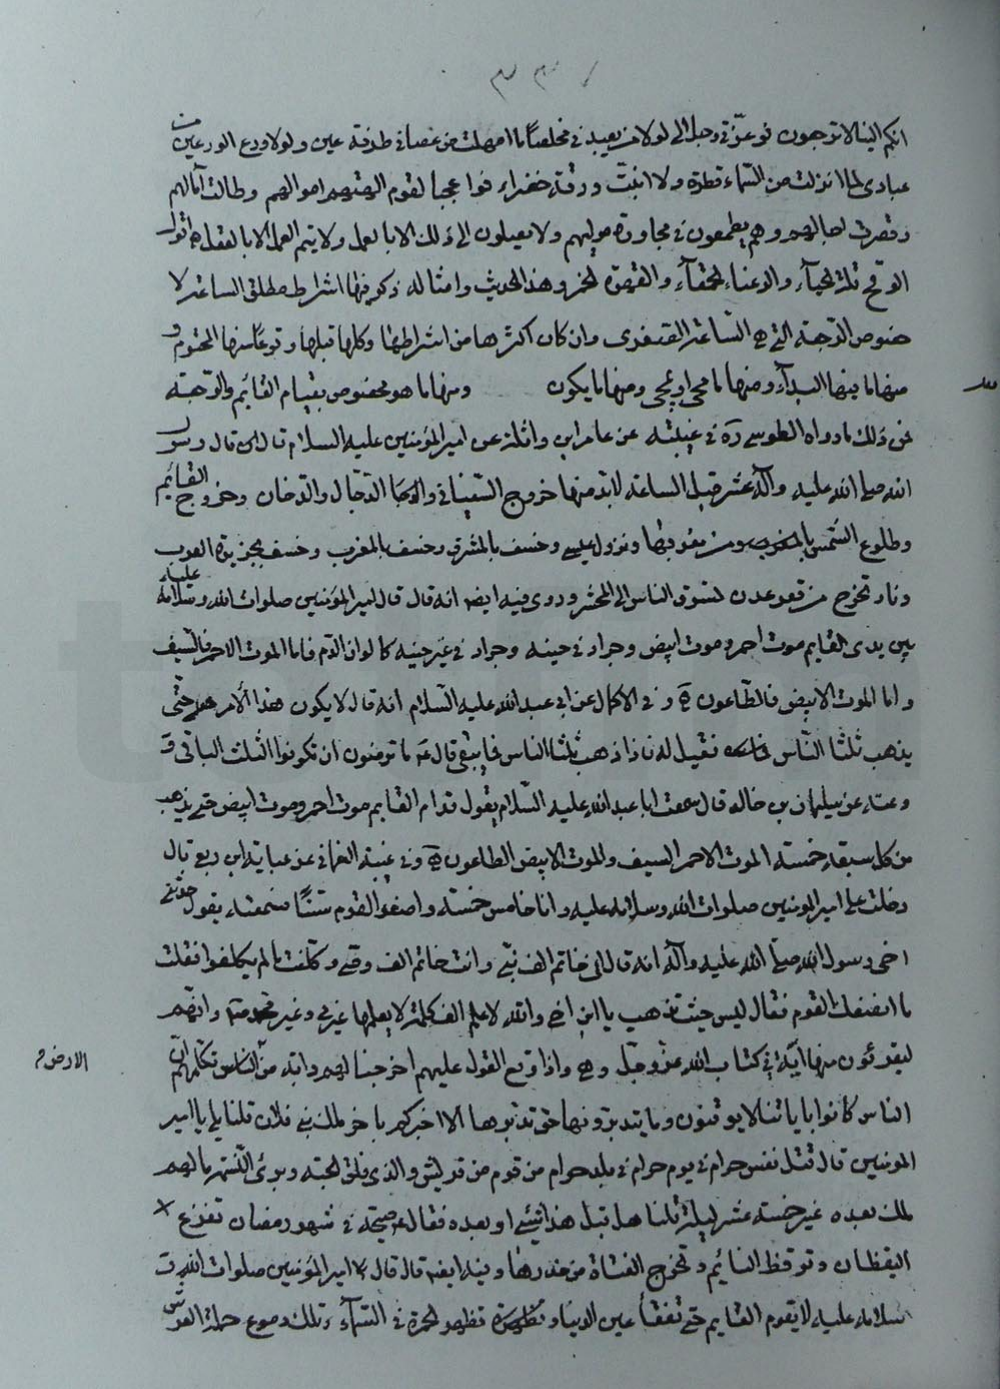 انكم الينا لا ترجعون فوعزتى وجلالى لولا من يعبدنى مخلصا ما امهلت من عصانى طرفة عين ولولا ورع الورعين من
عبادى لما انزلت من السماء قطرة ولا انبتت ورقة خضراء فوا عجبا لقوم الهتهم اموالهم وطالت آمالهم
وقصرت اجالهم وهم يطمعون فى مجاورة موليهم ولا يصلون الى ذلك الا بالعمل ولا يتم العمل الا بالعقل
وهذا الحديث وامثاله ذكر فيها اشراط مطلق الساعة لا
خصوص الرجعة التى هى الساعة الصغرى وان كان اكثرها من اشراطها وكلها قبلها وتوعا منها المحتوم و
منها ما فيها البداء ومنها ما محى او يمحى ومنها ما يكون ومنها ما هو مخصوص بقيام القائم والرجعة
فمن ذلك ما رواه الطوسى ره فى غيبته عن عامر ابن واثلة عن امير المؤمنين عليه السلام قال قال رسول
الله صلى الله عليه وآله عشر قبل الساعة لابد منها خروج السفيانى والدجال والدخان وخروج القائم
وطلوع الشمس من مغربها ونزول عيسى وخسف بالمشرق وخسف بالمغرب وخسف بجزيرة العرب
ونار تخرج من قعر عدن تسوق الناس الى المحشر وروى فيه ايضا انه قال قال امير المؤمنين صلوات الله وسلامه عليه
بين يدى القايم موت احمر وموت ابيض وجراد فى حينه وجراد فى غير حينه كالوان الدم فاما الموت الاحمر فالسيف
واما الموت الابيض فالطاعون وفى الاكمال عن ابى عبد الله عليه السلام انه قال لا يكون هذا الأمر حتى
يذهب ثلثا الناس فقيل له فاذا ذهب ثلثا الناس فما يبقى قال ع ما ترضون ان تكونوا الثلث الباقى و
وعنه عن سليمان بن خالد قال سمعت ابا عبد الله عليه السلام يقول قدام القايم موت احمر وموت ابيض حتى يذهب
من كل سبعة خمسة الموت الاحمر السيف والموت الابيض الطاعون وفى غيبة النعمانى عن عباية ابن ربعى قال
دخلت على امير المومنين صلوات الله وسلامه عليه وانا خامس خمسة واصغر القوم سنا فسمعته يقول حدثنى
اخى رسول الله صلى الله عليه وآله انه قال انى خاتم الف نبى وانت خاتم الف وصى وكلفت ما لم يكلفوا فقلت
ما انصفك القوم فقال ليس حيث تذهب يا ابن اخى والله لاعلم الف كلمة لا يعلمها غيرى وغير محمد ص وانهم
ليقرئون منها آية فى كتاب الله عز وجل وهى واذا وقع القول عليهم اخرجنا لهم دابة من الناس تكلمهم ان
الارض م
الناس كانوا باياتنا لا يوقنون وما يتدبرونها حق تدبرها ألا اخبركم باخر ملك بنى فلان قلنا بلى يا امير
المومنين قال قتل نفس حرام فى يوم حرام فى بلد حرام من قوم من قريش والذى فلق الحبة وبرئ النسمة مالهم
ملك بعده غير خمسة عشر ليلة قلنا هل قبل هذا شيئى او بعده فقال صيحة فى شهر رمضان تفزع
اليقظان وتوقظ النائم وتخرج الفتاة من خدرها وفيه ايضا قال قال امير المؤمنين صلوات الله و
سلامه عليه لا يقوم القايم حتى تفقأ عين الدنيا وتظهر الحمرة فى السماء وتلك دموع حملة العرش